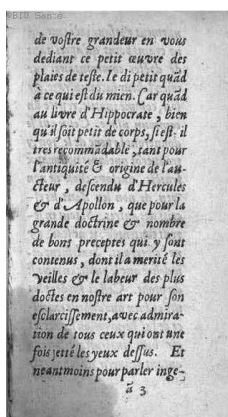 ©BIU Santé
de vostre grandeur en vous
dediant ce petit œuvre des
plaies de teste. Ie di petit quãd
à ce qui est du mien. Car quãd
au livre d'Hippocrate, bien
qu'il soit petit de corps, si est-il
tres recommãdable, tant pour
l'antiquité & origine de l'au-
cteur, descendu d'Hercules
& d'Apollon, que pour la
grande doctrine & nombre
de bons preceptes qui y sont
contenus, dont il a merité les
veilles & le labeur des plus
doctes en nostre art pour son
esclarcissement, avec admira-
tion de tous ceux qui ont une
fois jetté les yeux dessus. Et
neantmoins pour parler inge-
ã 3